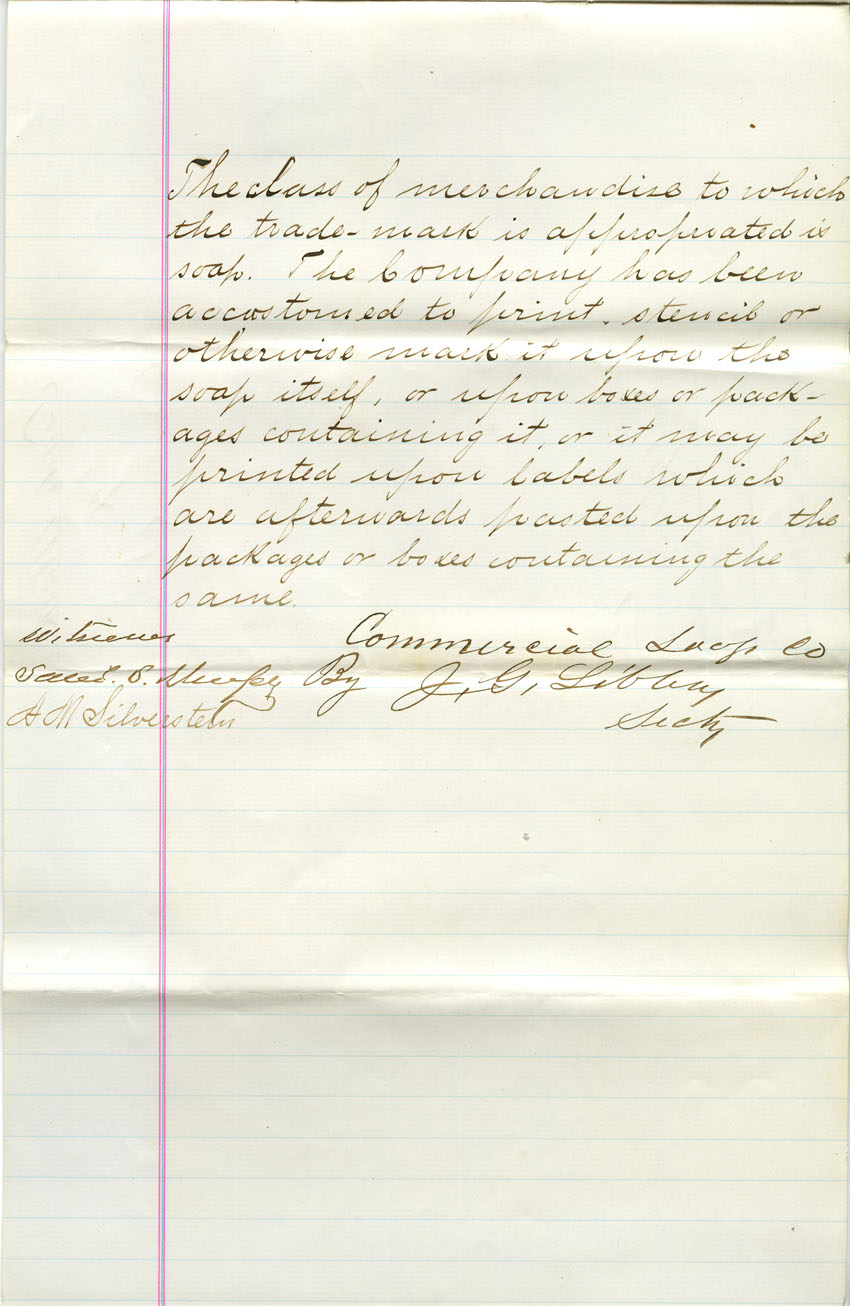 The class of merchandise to which
the trade-mark is appropriated is
soap. The Company has been
accustomed to print, stencil or
otherwise mark it upon the
soap itself, or upon boxes or pack-
ages containing it, or it may be
printed upon labels which
are afterwards pasted upon the
packages or boxes containing the
same.
Witnesses Commercial Soap Co
By J. G. Libby
A M Silverstein Secty